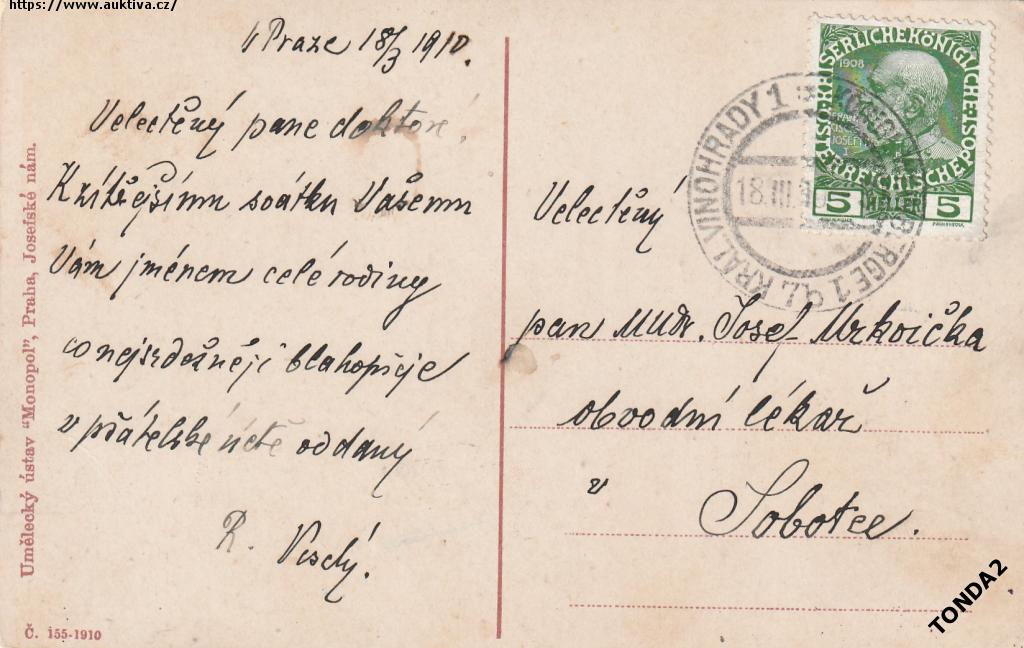 https://www.auktiva.cz/
V Praze 18/3 1910.
Velectěný pane doktore,
K zítřejšímu svátku Vašemu
Vám jménem celé rodiny
co nejsrdečněji blahopřeje
v přátelské úctě oddaný
R. Veselý.
Umělecký ústav "Monopol", Praha, Josefské nám.
Č. 155-1910
KAISERLICHE KÖNIGLICHE
ÖSTERREICHISCHE POST
1908
5 HELLER 5
KRÁL. VINOHRADY 1
18.III.
BERGE 1
Velectěný
pan MUDr. Josef Mrkvička
obvodní lékař
v Sobotce.
TONDA2